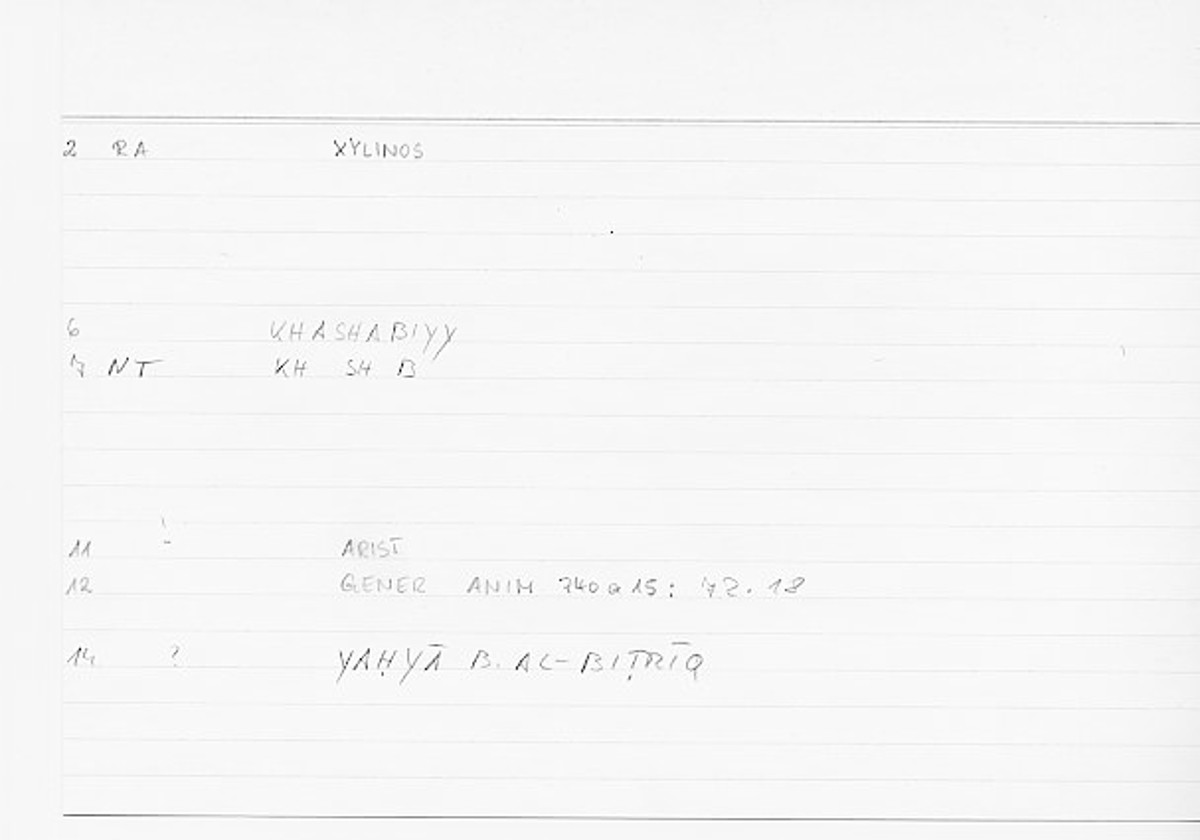 2 RA XYLINOS
6 KHASHABIYY
7 NT KH SH B
11 - ARIST
12 GENER ANIM 740a15: 72.18
14 ? YAḤYĀ B. AL-BIṬRĪQ